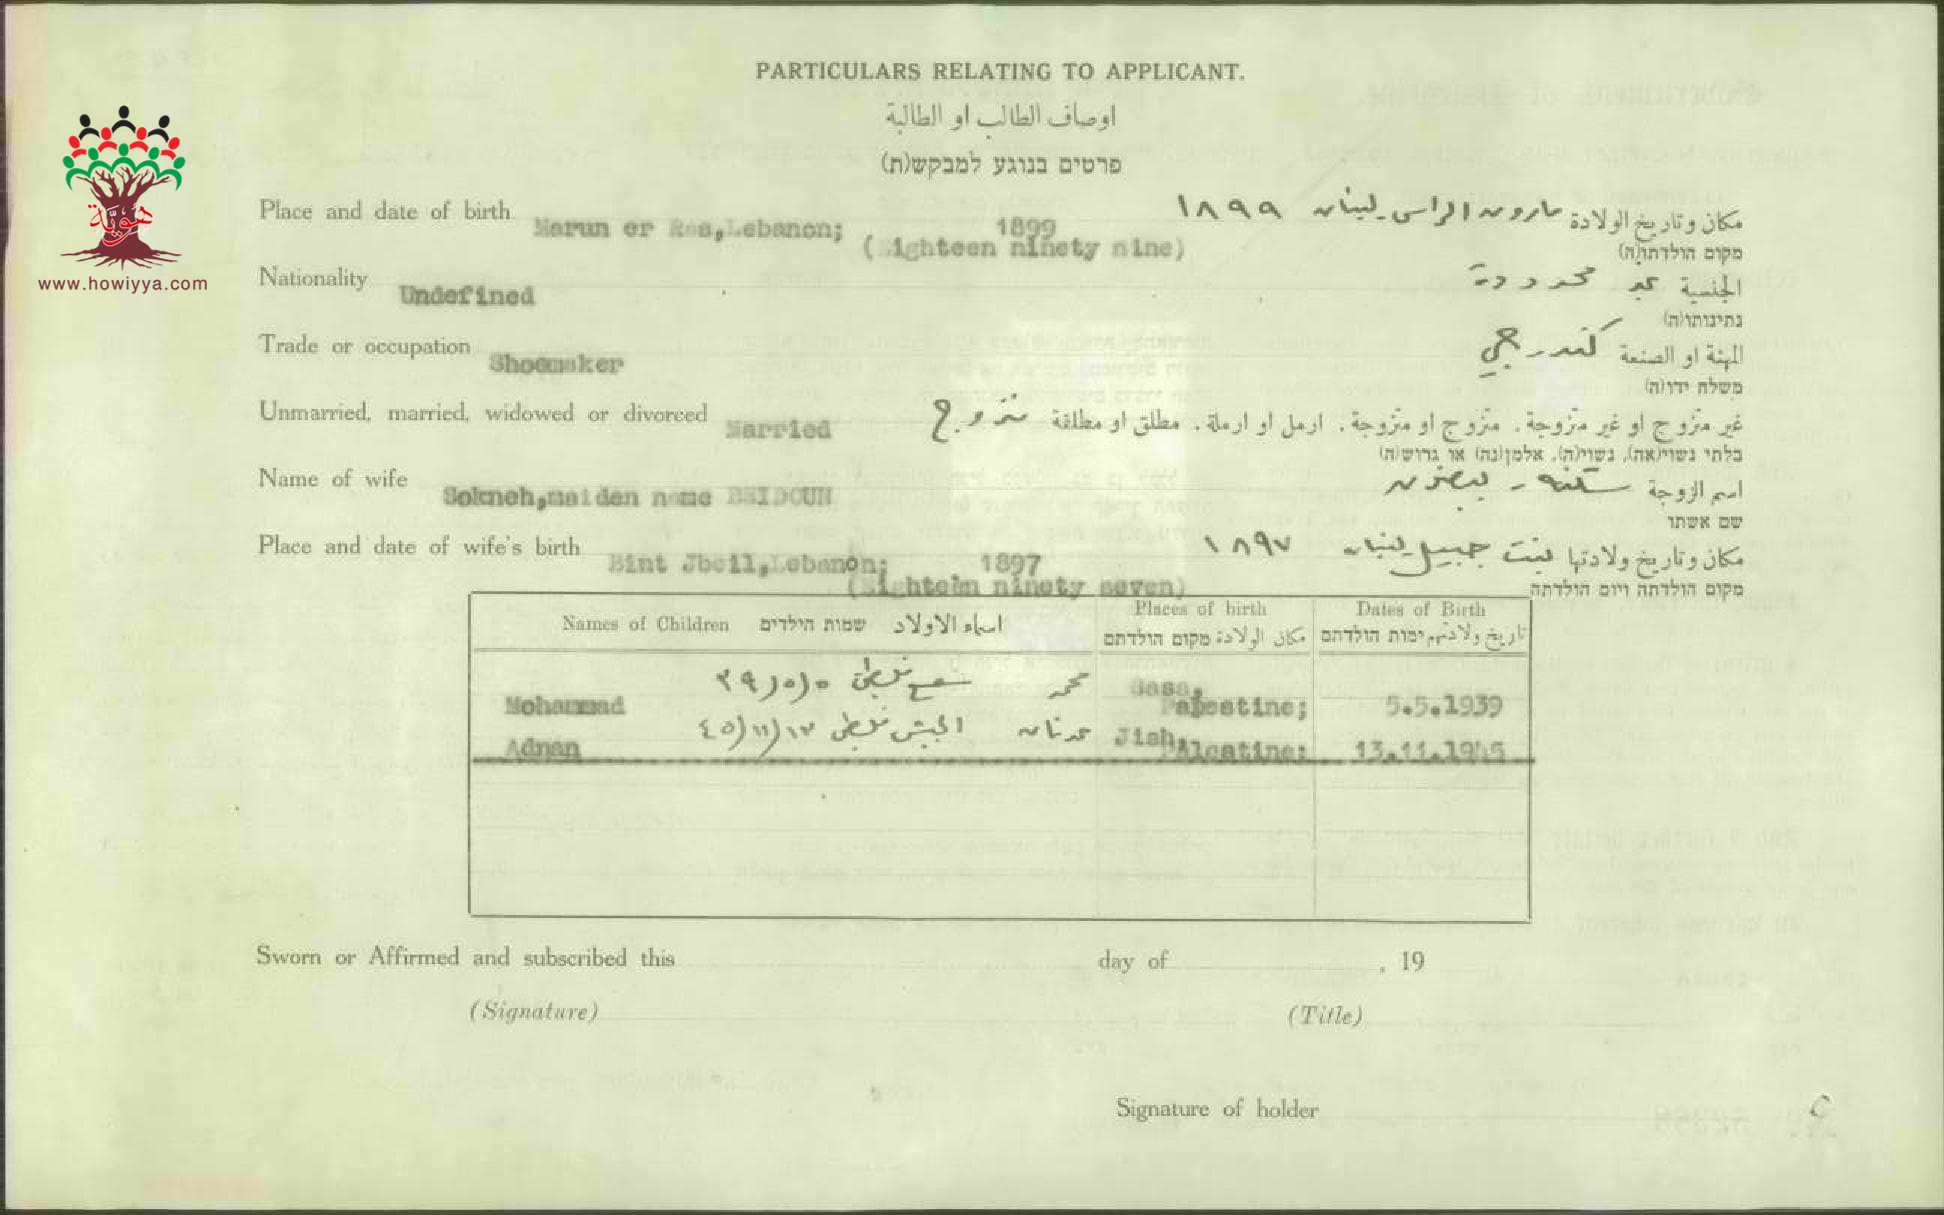 PARTICULARS RELATING TO APPLICANT.
اوصاف الطالب او الطالبة
פרטים בנוגע למבקש(ת)
هَويّة
www.howiyya.com
Place and date of birth Marun er Ras, Lebanon; 1899 مارون الراس - لبنان ١٨٩٩ مكان وتاريخ الولادة
(Eighteen ninety nine) מקום הולדתו(ה)
Nationality Undefined غير محدودة الجنسية
נתינותו(ה)
Trade or occupation Shoemaker كندرجي المهنة او الصنعة
משלח ידו(ה)
Unmarried, married, widowed or divorced Married غير متزوج او غير متزوجة، متزوج او متزوجة، ارمل او ارملة، مطلق او مطلقة متزوج
בלתי נשוי(אה), נשוי(ה), אלמן(נה) או גרוש(ה)
Name of wife Sokneh, maiden name BEIDOUN سكنه - بيضون اسم الزوجة
שם אשתו
Place and date of wife's birth Bint Jbeil, Lebanon; 1897 بنت جبيل - لبنان ١٨٩٧ مكان وتاريخ ولادتها
(Eighteen ninety seven) מקום הולדתה ויום הולדתה
Names of Children שמות הילדים اسماء الاولاد Places of birth מקום הולדתם مكان الولادة Dates of Birth ימות הולדתם تاريخ ولادتهم
Mohammad محمد ٣٩/٥/٥ Sasa, Palestine; 5.5.1939
Adnan عدنان الجش ٤٥/١١/١٣ Jish, PAlestine; 13.11.1945
Sworn or Affirmed and subscribed this day of , 19
(Signature) (Title)
Signature of holder